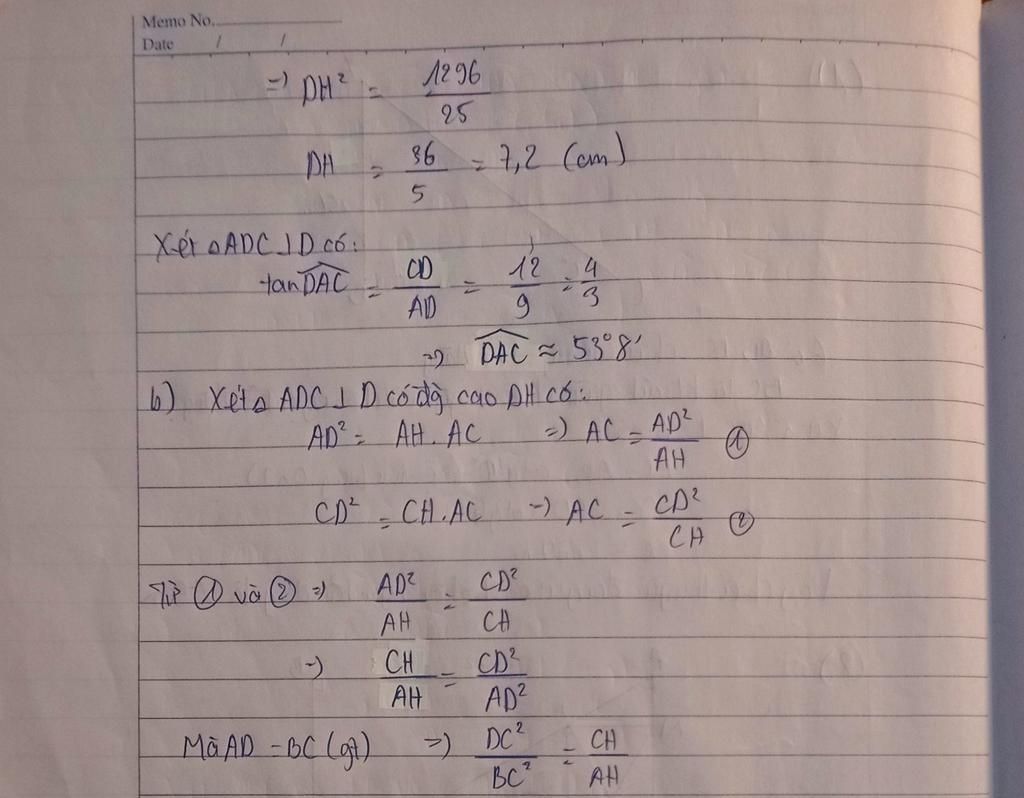 Memo No.
Date / /
=) DH² = 1296/25
DH = 36/5 = 7,2 (cm)
Xét △ADC⊥D có:
tan DAC = CD/AD = 12/9 = 4/3
=) DAC ≈ 53°8'
b) Xét △ ADC⊥D có đg̀ cao DH có:
AD² = AH.AC =) AC = AD²/AH ①
CD² = CH.AC =) AC = CD²/CH ②
Từ ① và ② =) AD²/AH = CD²/CH
=) CH/AH = CD²/AD²
Mà AD = BC (gt) =) DC²/BC² = CH/AH